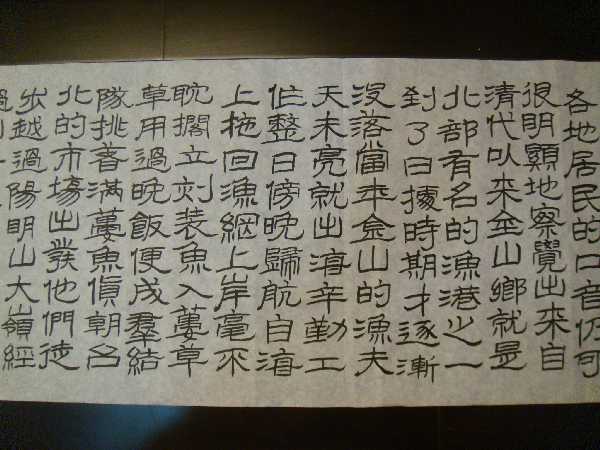 各地居民的口音仍可
很明顯地察覺出來自
清代以來金山鄉就是
北部有名的漁港之一
到了日據時期才逐漸
沒落當年金山的漁夫
天未亮就出海辛勤工
作整日傍晚歸航自海
上拖回漁網上岸毫不
耽擱立刻裝魚入簍草
草用過晚飯便成羣結
隊挑著滿簍魚貨朝台
北的市場出發他們徒
步越過陽明山大嶺經